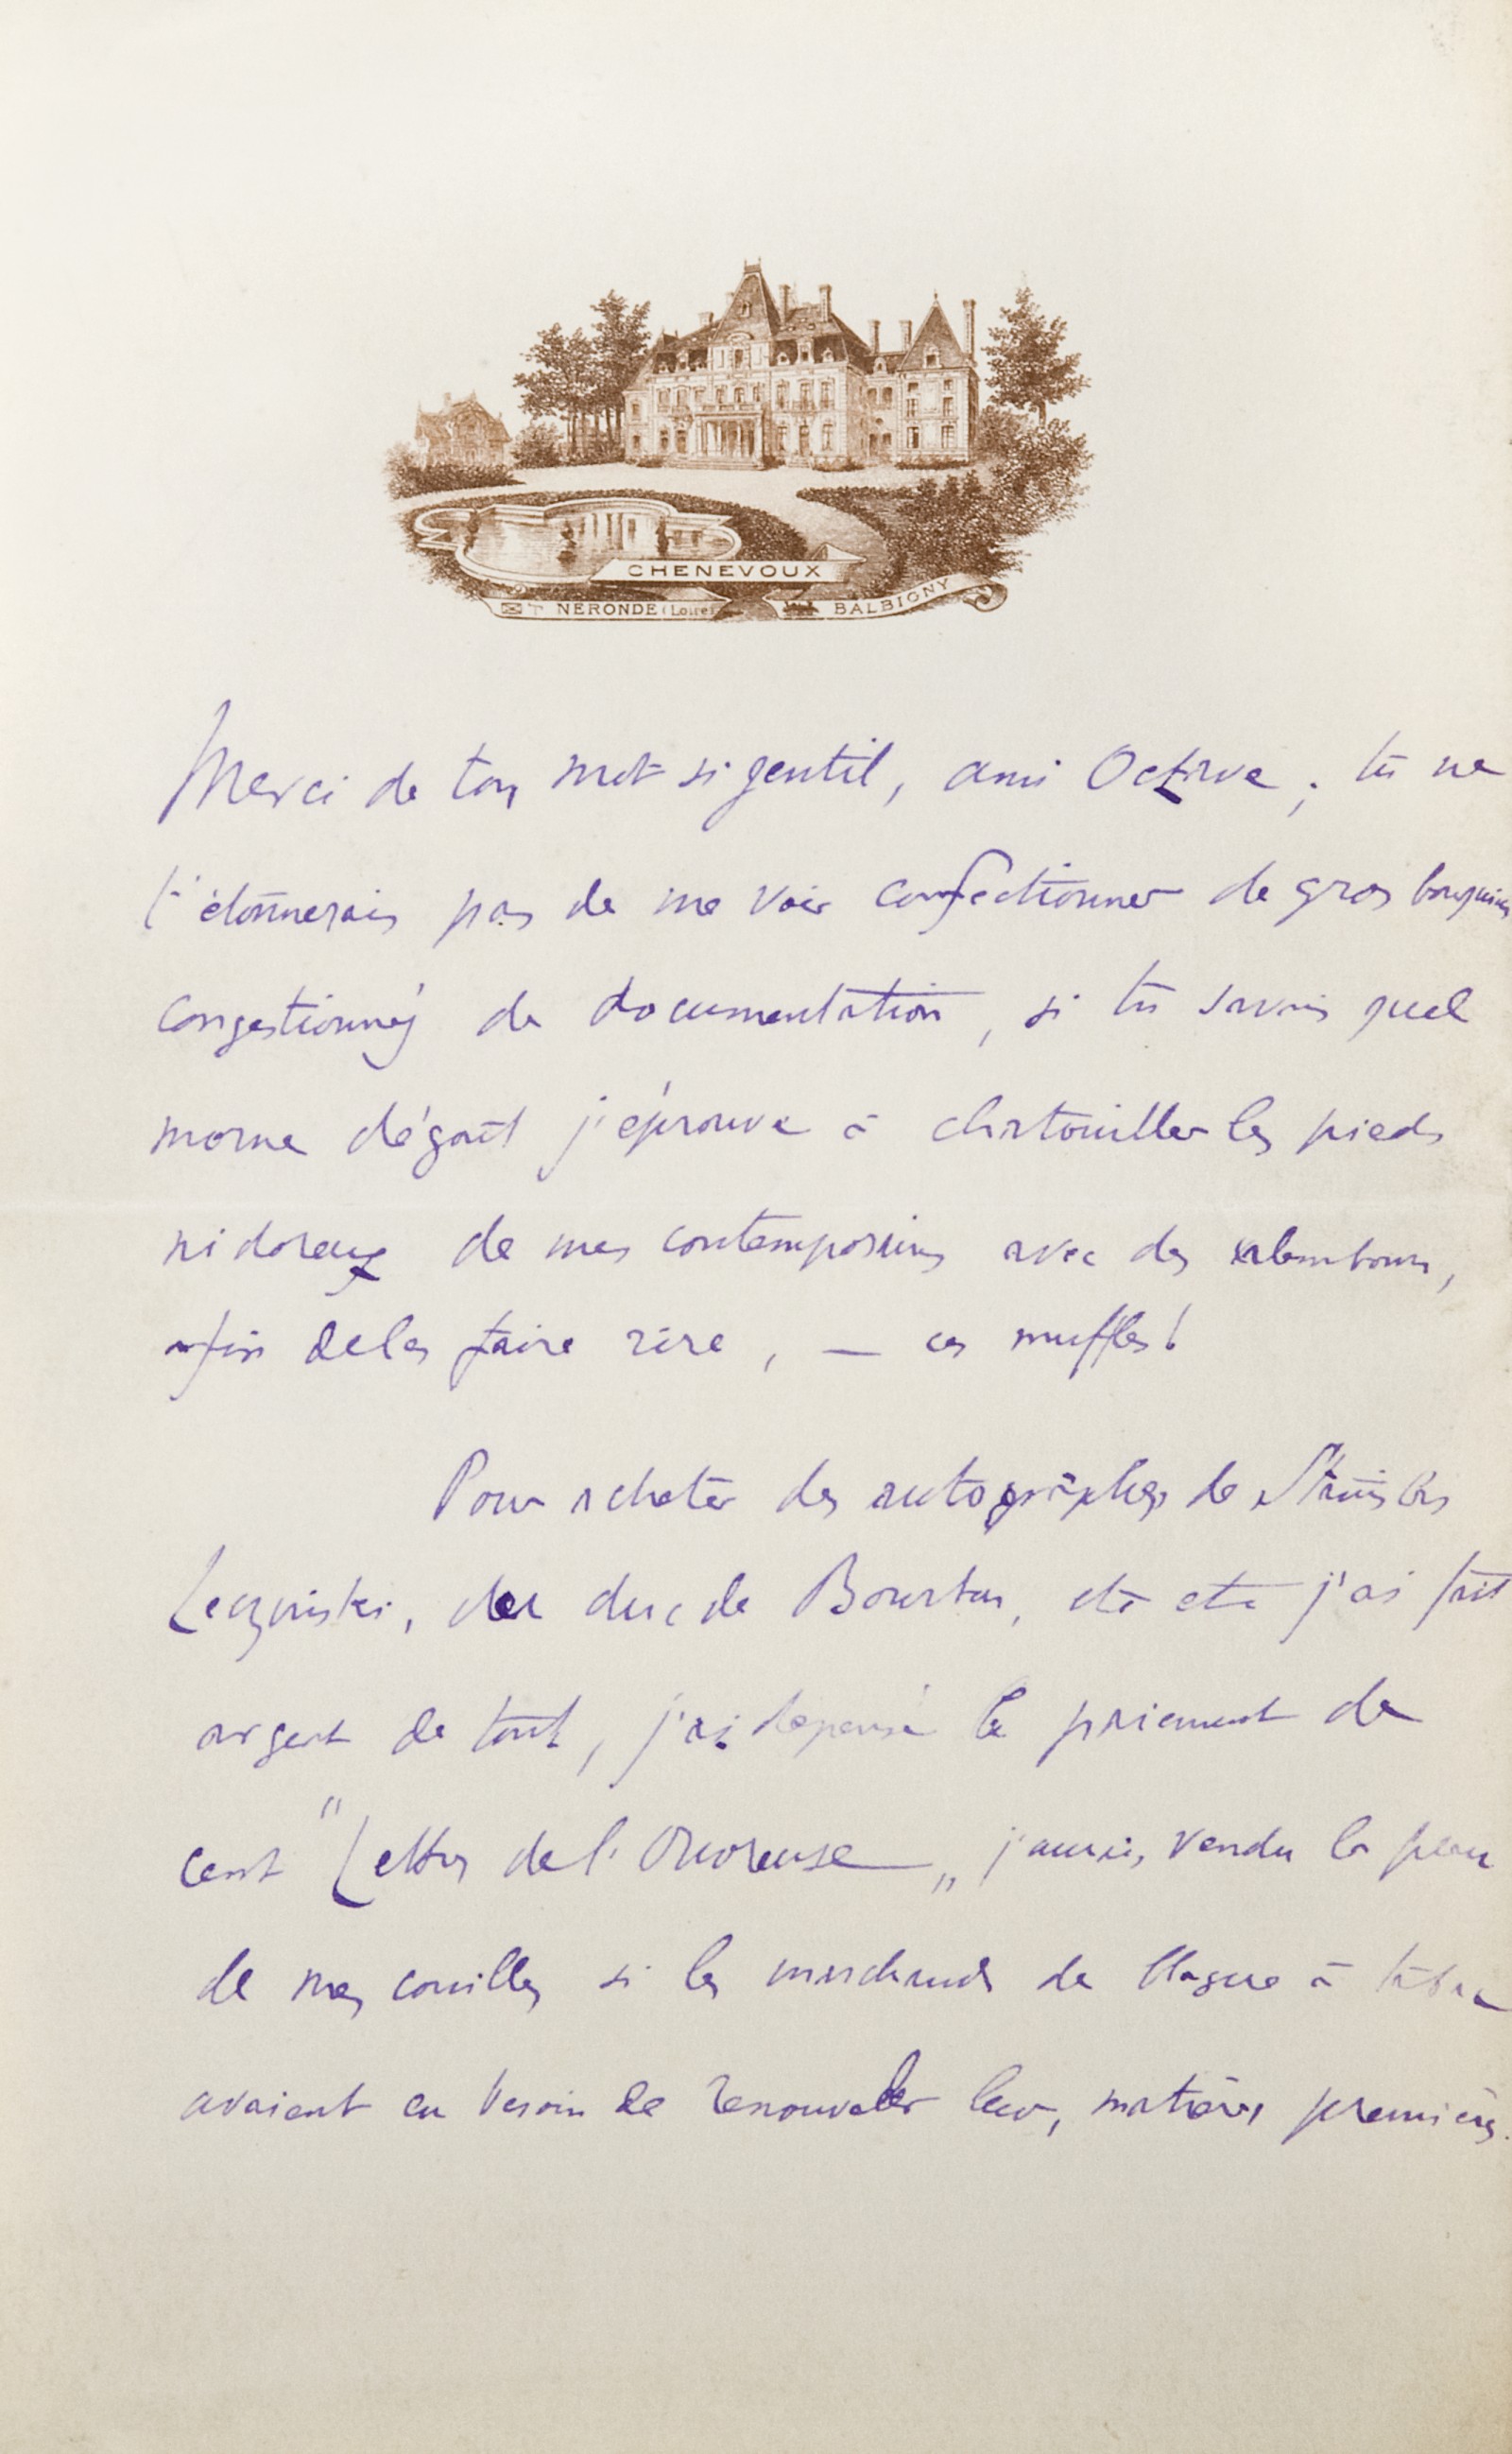 CHENEVOUX
NERONDE (Loire) BALBIGNY
Merci de ton mot si gentil, ami Octave ; tu ne
t'étonnerais pas de me voir confectionner de gros bouquins
congestionnés de documentation, si tu savais quel
morne dégoût j'éprouve à chatouiller les pieds
nidoreux de mes contemporains avec des calembours,
afin de les faire rire, — ces muffles !
Pour acheter des autographes de Stanislas
Leczinski, du duc de Bourbon, etc etc j'ai fait
argent de tout, j'ai dépensé le paiement de
cent "Lettres de l'Ouvreuse„ j'aurais vendu la peau
de mes couilles si les marchands de blague à tabac
avaient eu besoin de renouveler leurs matières premières.